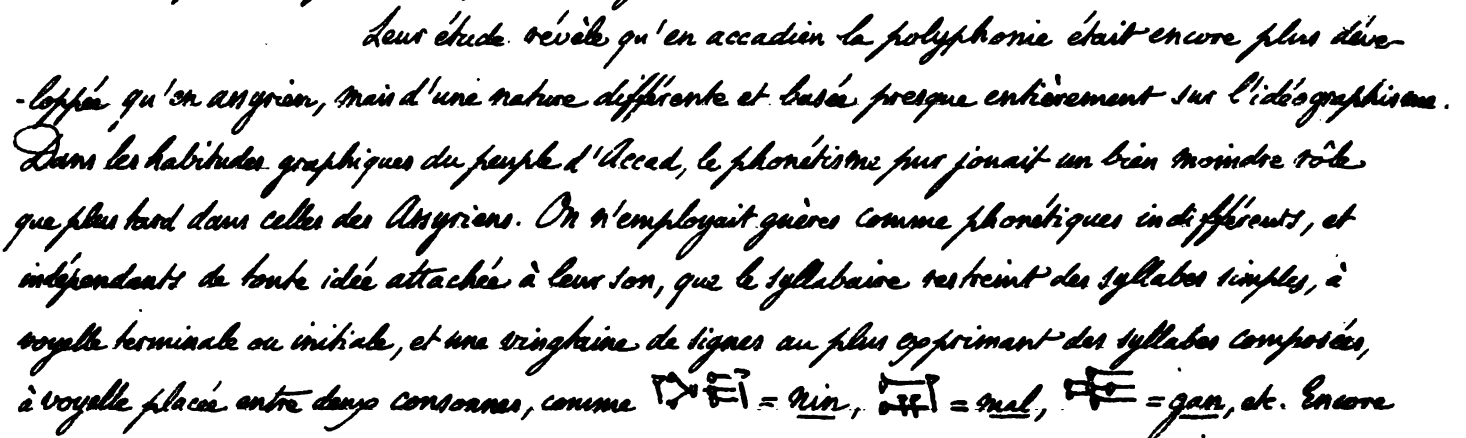 Leur étude révèle qu'en accadien la polyphonie était encore plus déve-
-loppée qu'en assyrien, mais d'une nature différente et basée presque entièrement sur l'idéographisme.
Dans les habitudes graphiques du peuple d'Accad, le phonétisme pur jouait un bien moindre rôle
que plus tard dans celles des Assyriens. On n'employait guères comme phonétiques indifférents, et
indépendants de toute idée attachée à leur son, que le syllabaire restreint des syllabes simples, à
voyelle terminale ou initiale, et une vingtaine de signes au plus exprimant des syllabes composées,
à voyelle placée entre deux consonnes, comme = nin, = mal, = gan, etc. Encore